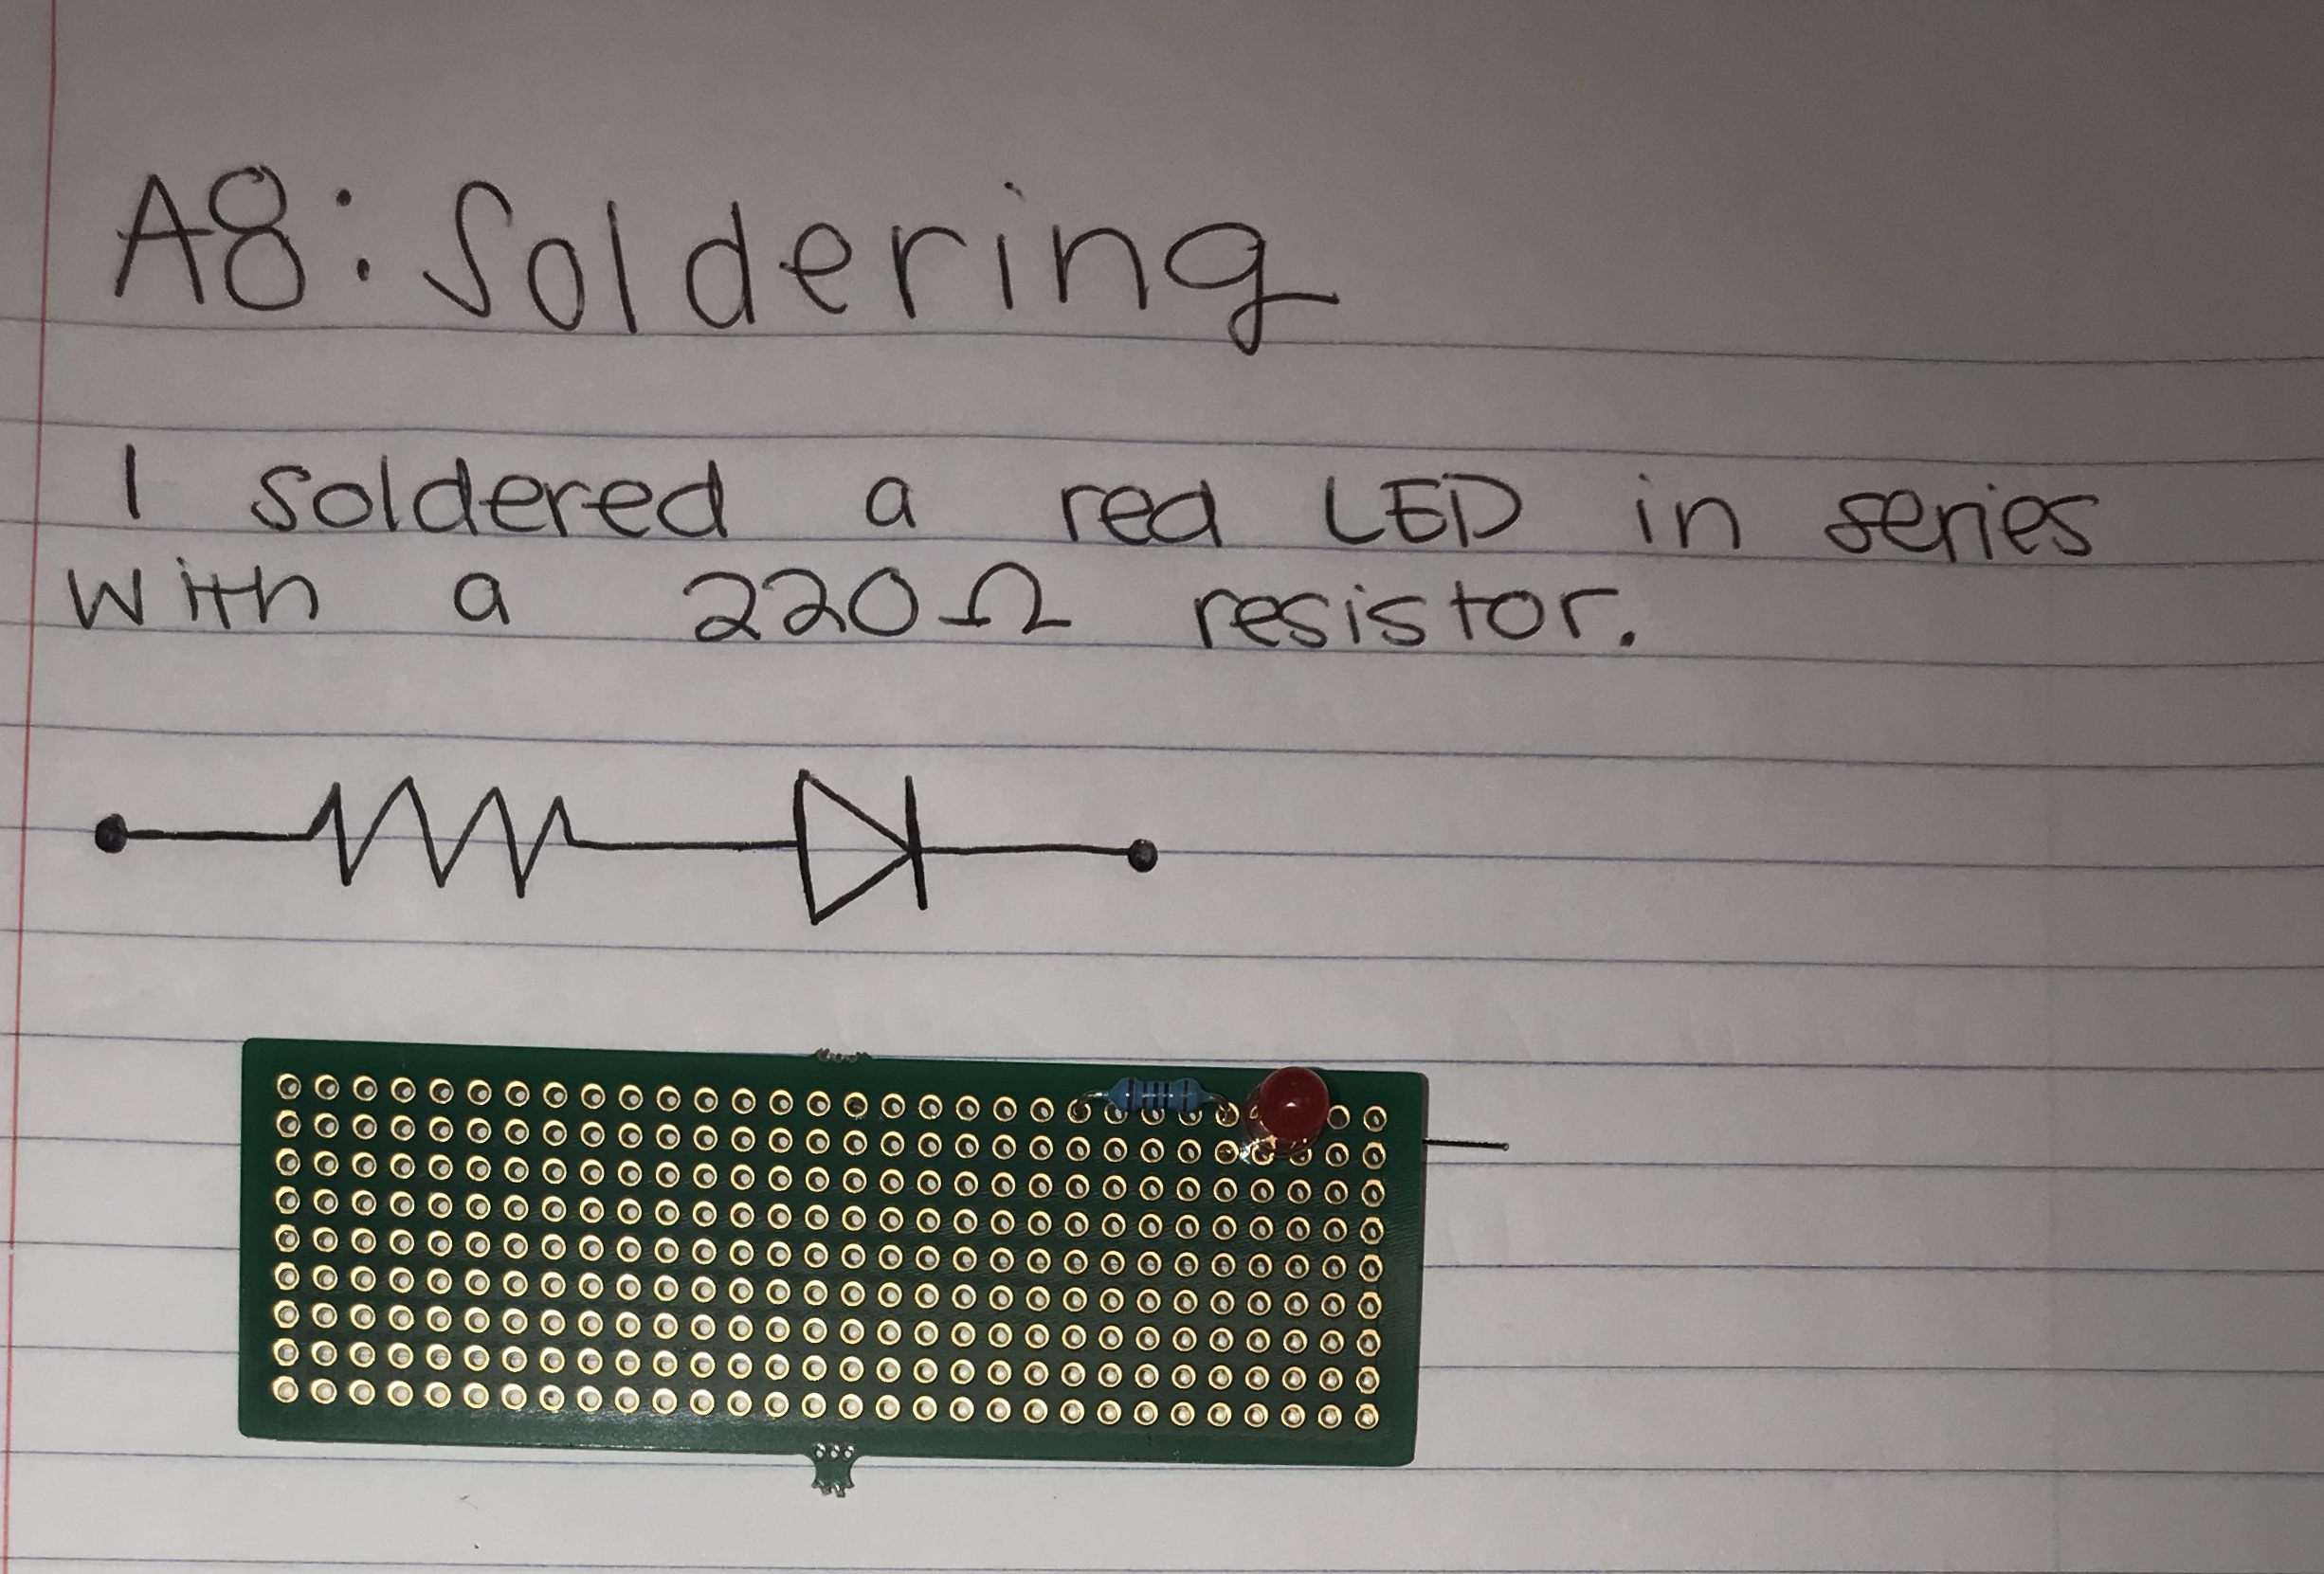 A8: Soldering
I soldered a red LED in series
with a 220Ω resistor.